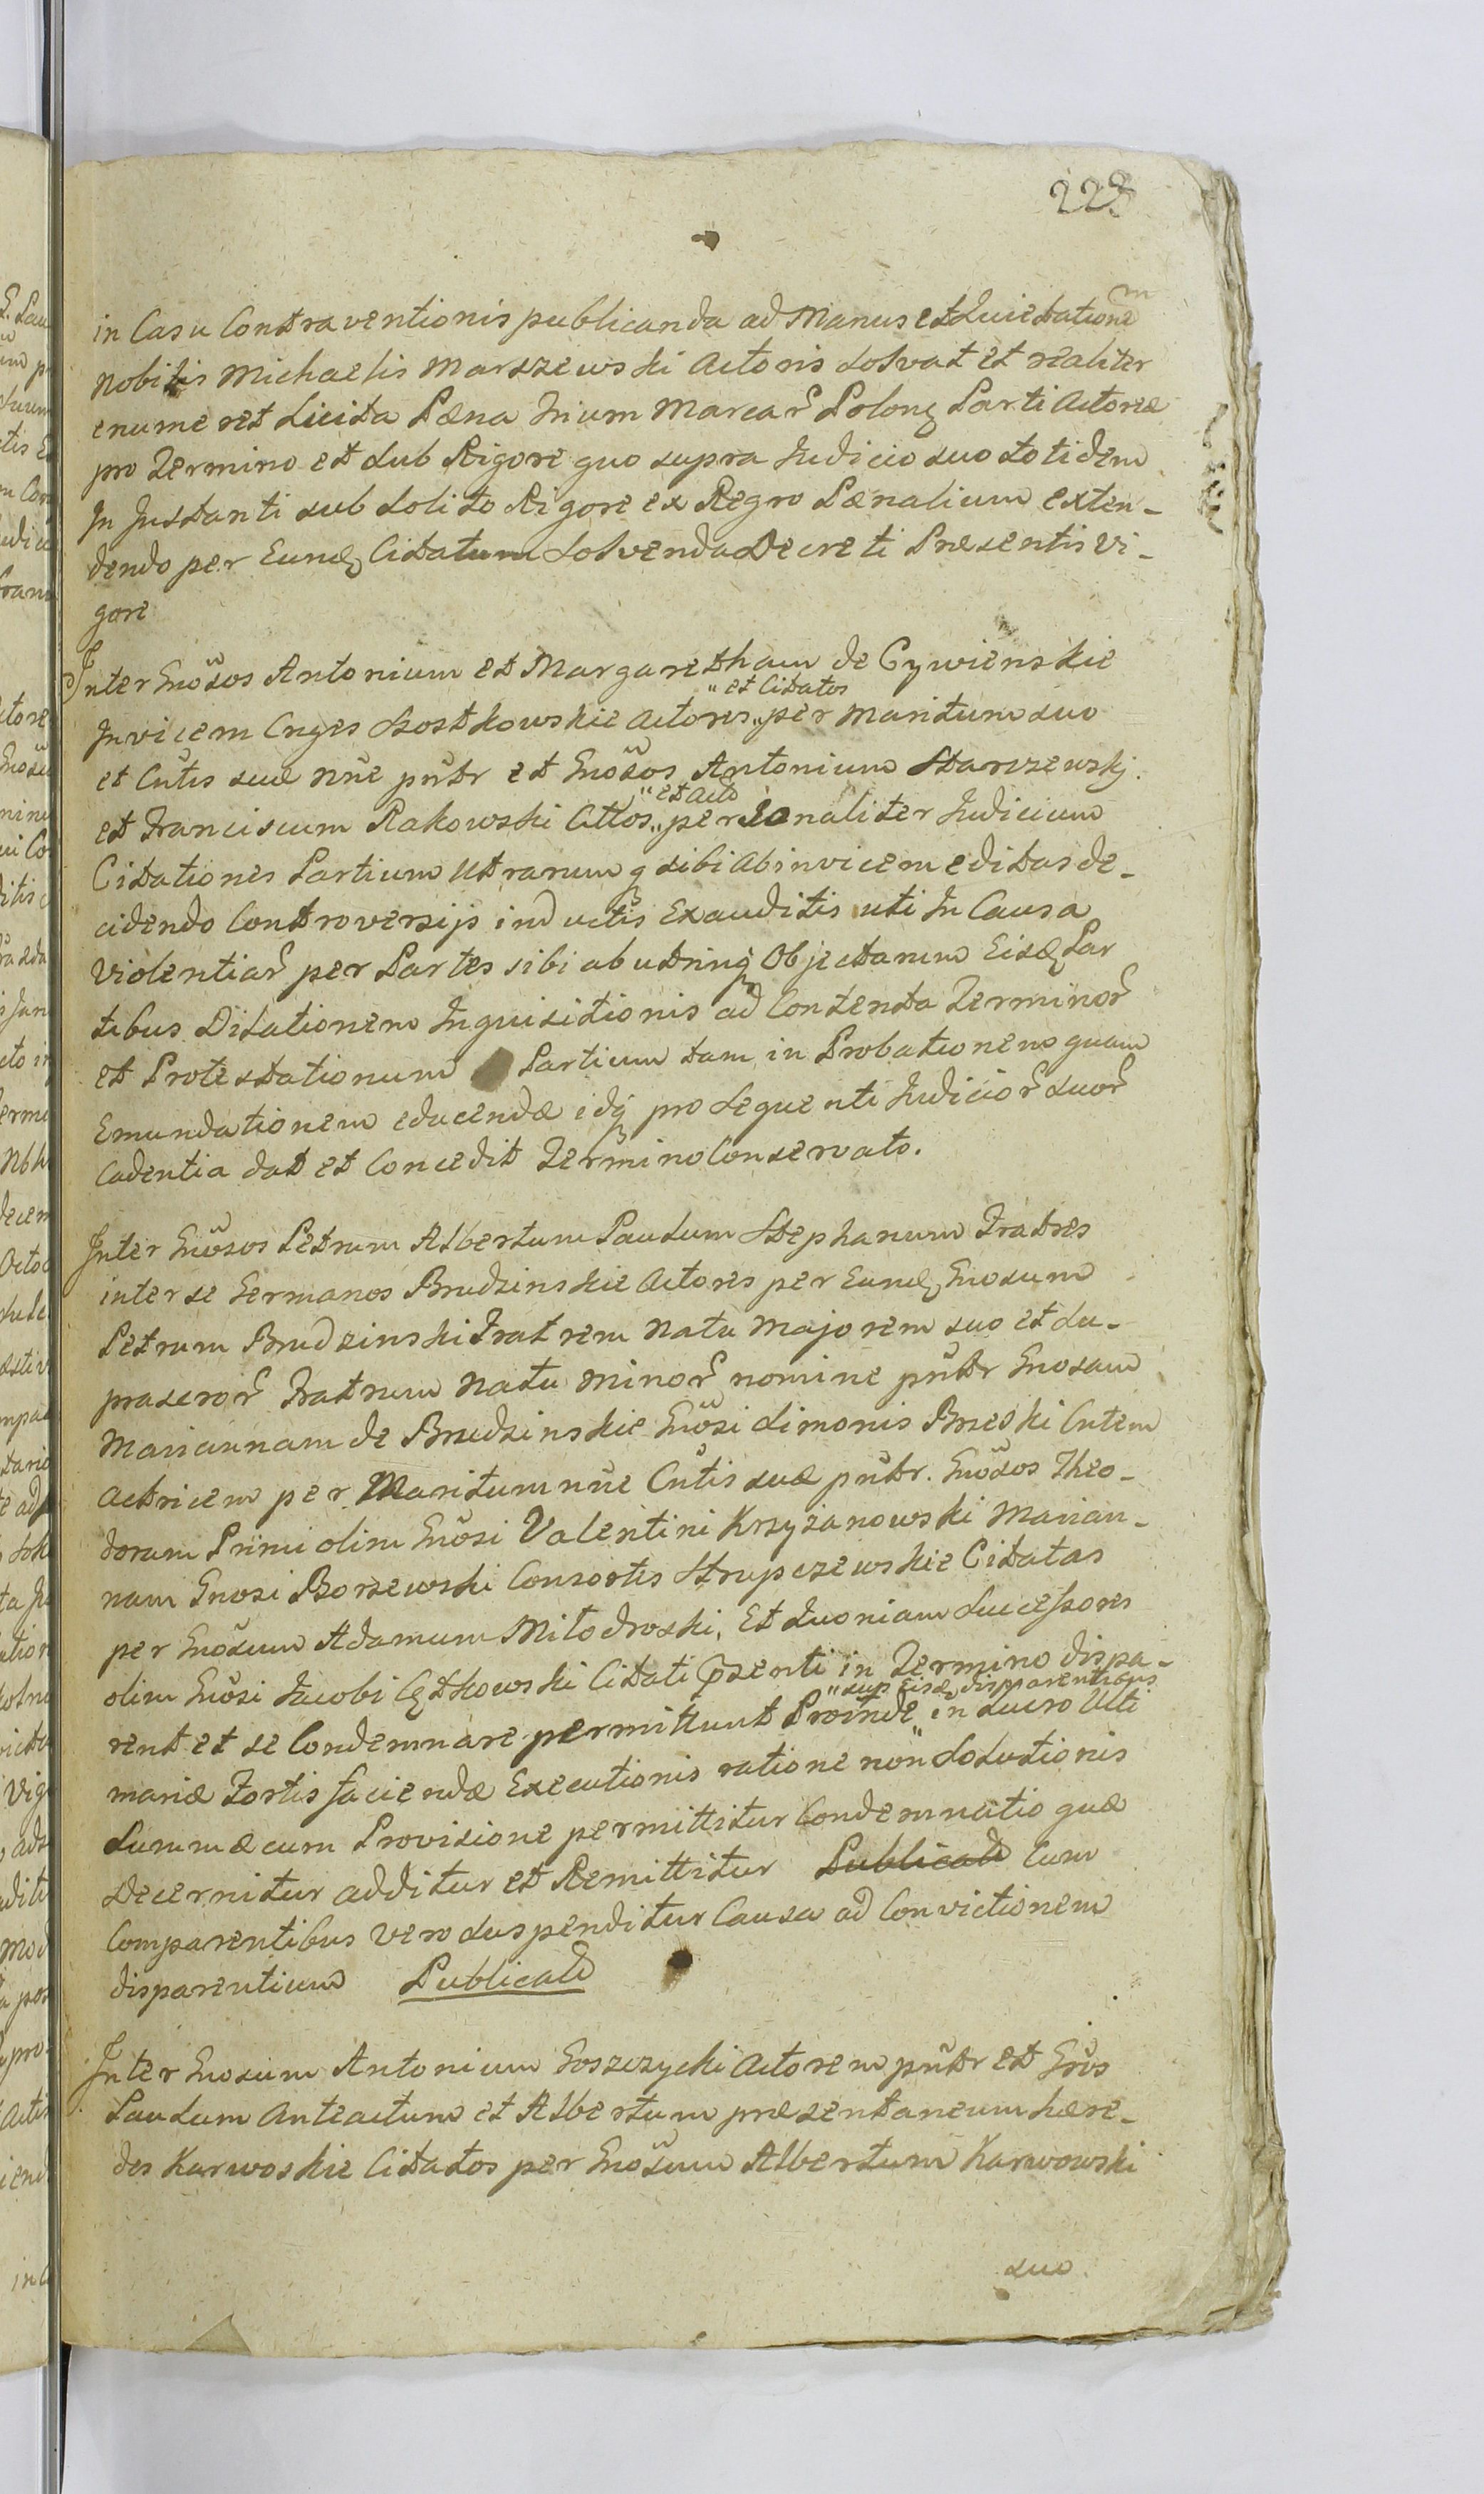 223
in Casu Contraventionis publicanda ad Manus et Quietationem
Nobilis Michaelis Marszewski Actoris solvat et realiter
enumeret Luita Pæna trium Marcar Polonq Parti Actoreæ
pro Termino et sub Rigore quo supra Judicio suo totidem
In Instanti sub solito Rigore ex Regro Pænalium exten-
dendo per Eundq Citatum solvenda Decreti Præsentis Vi-
gore
Inter Gnösos Antonium et Margaretham de Cywienskie
Invicem Cnges Szostkowskie Actores " et Citatos " per Maritum suo
et Cntis suæ nñe pñtr et Gnösos Antonium Starczewskj
et Franciscum Rakowski Cittos " et Acto " personaliter Judicium
Citationes Partium Utrarumq sibi ab invicem editas de-
cidendo Controversijs inductis Exauditis uti In Causa
Violentiar per Partes sibi ab utrinq Objectarum Eisdq Par
tibus Dilationem Inquisitionis ad Contenta Terminor
et Protestationum Partium tam in Probationem quam
Emundationem educendæ idq pro sequenti Judicior suor
Cadentia dat et Concedit Termino Conservato.
Inter Gnösos Petrum Albertum Paulum Stephanum Fratres
inter se Germanos Brudzinskie Actores per Eundq Gnosum
Petrum Brudzinski Fratrem Natu Majorem suo et su-
prascror Fratrum Natu Minor nomine pñtr Gnosam
Mariannam de Brudzinskie Gnösi Simonis Brzeski Cntem
Actricem per Maritum nñe Cntis suæ pñtr. Gnösos Theo-
doram Primi olim Gnösi Valentini Krzyżanowski Marian-
nam Gnosi Borzewski Consortes Strupczewskie Citatas
per Gnösum Adamum Mitodroski, Et Quoniam Successores
olim Gnösi Jacobi Cętkowski Citati p̃senti in Termino dispa-
rent et se Condemnare permittunt Proinde " sup Eisdq disparentibus " in Lucro Ulti
mariæ Fortis faciendæ Executionis ratione non Solutionis
Summæ cum Provisione permittitur Condemnatio quæ
Decernitur additur et Remittitur Publicatd Cum
Comparentibus vero suspenditur Causa ad Convictionem
disparentium Publicatd
Inter Gnosum Antonium Goszczycki Actorem pñtr et Gños
Paulum Anteactum et Albertum præsentaneum hære-
des Karwoskie Citatos per Gnösum Albertum Karwowski
suo